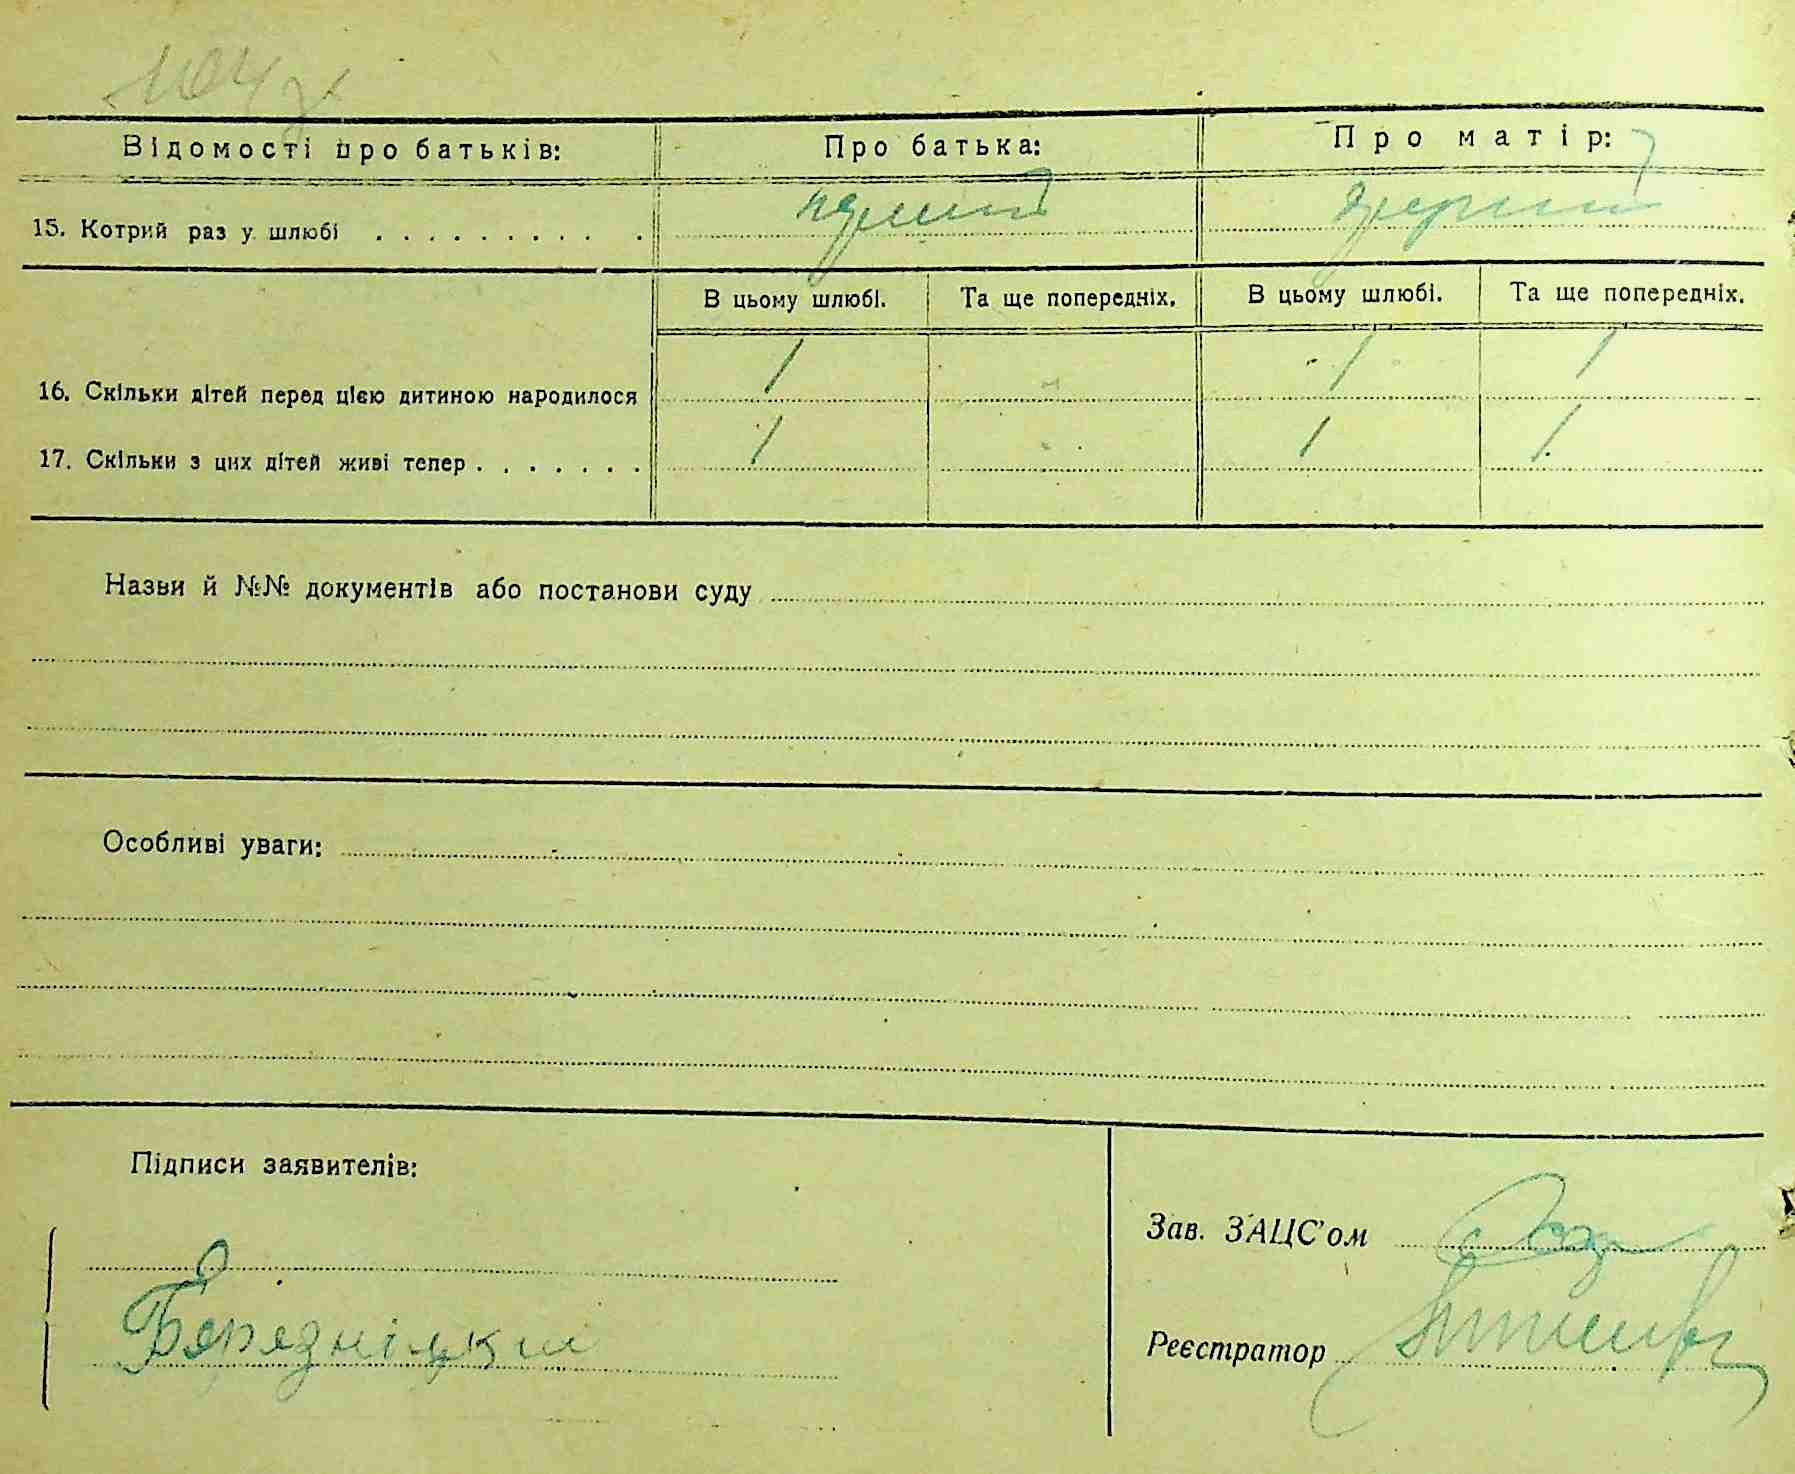 Відомості про батьків: Про батька: Про матір:
15. Котрий раз у шлюбі . . . . . . . . . . перший другий
В цьому шлюбі. Та ще попередніх. В цьому шлюбі. Та ще попередніх.
16. Скільки дітей перед цією дитиною народилося 1 - 1 1
17. Скільки з цих дітей живі тепер . . . . . . . 1 - 1 1
Назви й №№ документів або постанови суду
Особливі уваги:
Підписи заявителів:
Зав. ЗАЦС'ом
Березніцкий
Реєстратор